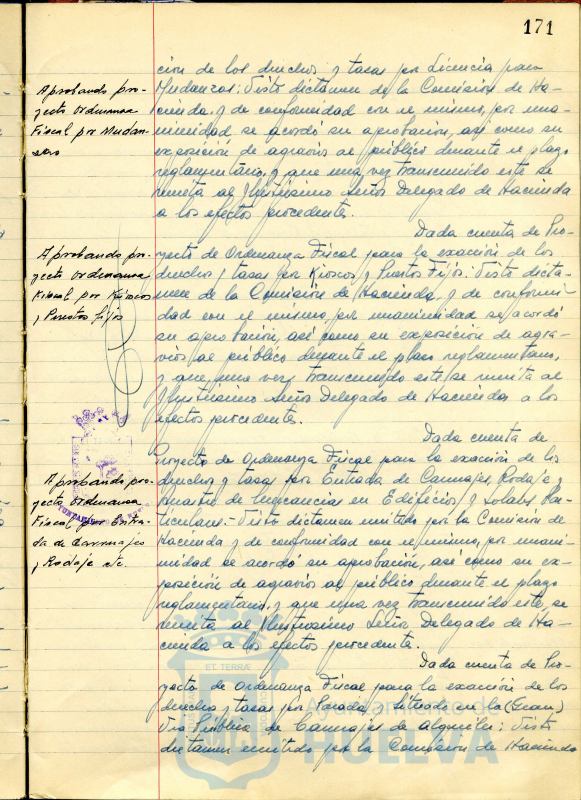 171
ción de los derechos y tasas por Licencia para
Mudanzas; Visto dictamen de la Comisión de Ha-
cienda, y de conformidad con el mismo, por una-
nimidad se acordó su aprobación, así como su
exposición de agravios al público durante el plazo
reglamentario, y que una vez transcurrido este se
remita al Ilustrísimo Señor Delegado de Hacienda
a los efectos procedente.
Aprobando pro-
yecto Ordenanza
Fiscal por Mudan-
zas
Dada cuenta de Pro-
yecto de Ordenanza Fiscal para la exacción de los
derechos y tasas por Kioscos y Puestos Fijos: Visto dicta-
men de la Comisión de Hacienda, y de conformi-
dad con el mismo, por unanimidad se acordó
su aprobación, así como su exposición de agra-
vios al público durante el plazo reglamentario,
y que una vez transcurrido este se remita al
Ilustrísimo Señor Delegado de Hacienda a los
efectos procedente.
Aprobando pro-
yecto Ordenanza
Fiscal por Kioscos
y Puestos fijos
Dada cuenta de
Proyecto de Ordenanza Fiscal para la exacción de los
derechos y tasas por Entrada de Carruajes, Rodaje y
arrastre de mercancías en Edificios y Solares Par-
ticulares.- Visto dictamen emitido por la Comisión de
Hacienda y de conformidad con el mismo, por unani-
midad se acordó su aprobación, así como su ex-
posición de agravios al público durante el plazo
reglamentario, y que una vez transcurrido este, se
remita al Ilustrísimo Señor Delegado de Ha-
cienda a los efectos procedente.
Aprobando pro-
yecto Ordenanza
Fiscal por Entra-
da de Carruajes
y Rodaje etc.
Dada cuenta de Pro-
yecto de Ordenanza Fiscal para la exacción de los
derechos y tasas por Parada y Situado en la
Vía Pública de Carruajes de alquiler; Visto
dictamen emitido por la Comisión de Hacienda
ET TERRÆ
Ayuntamiento de
HUELVA